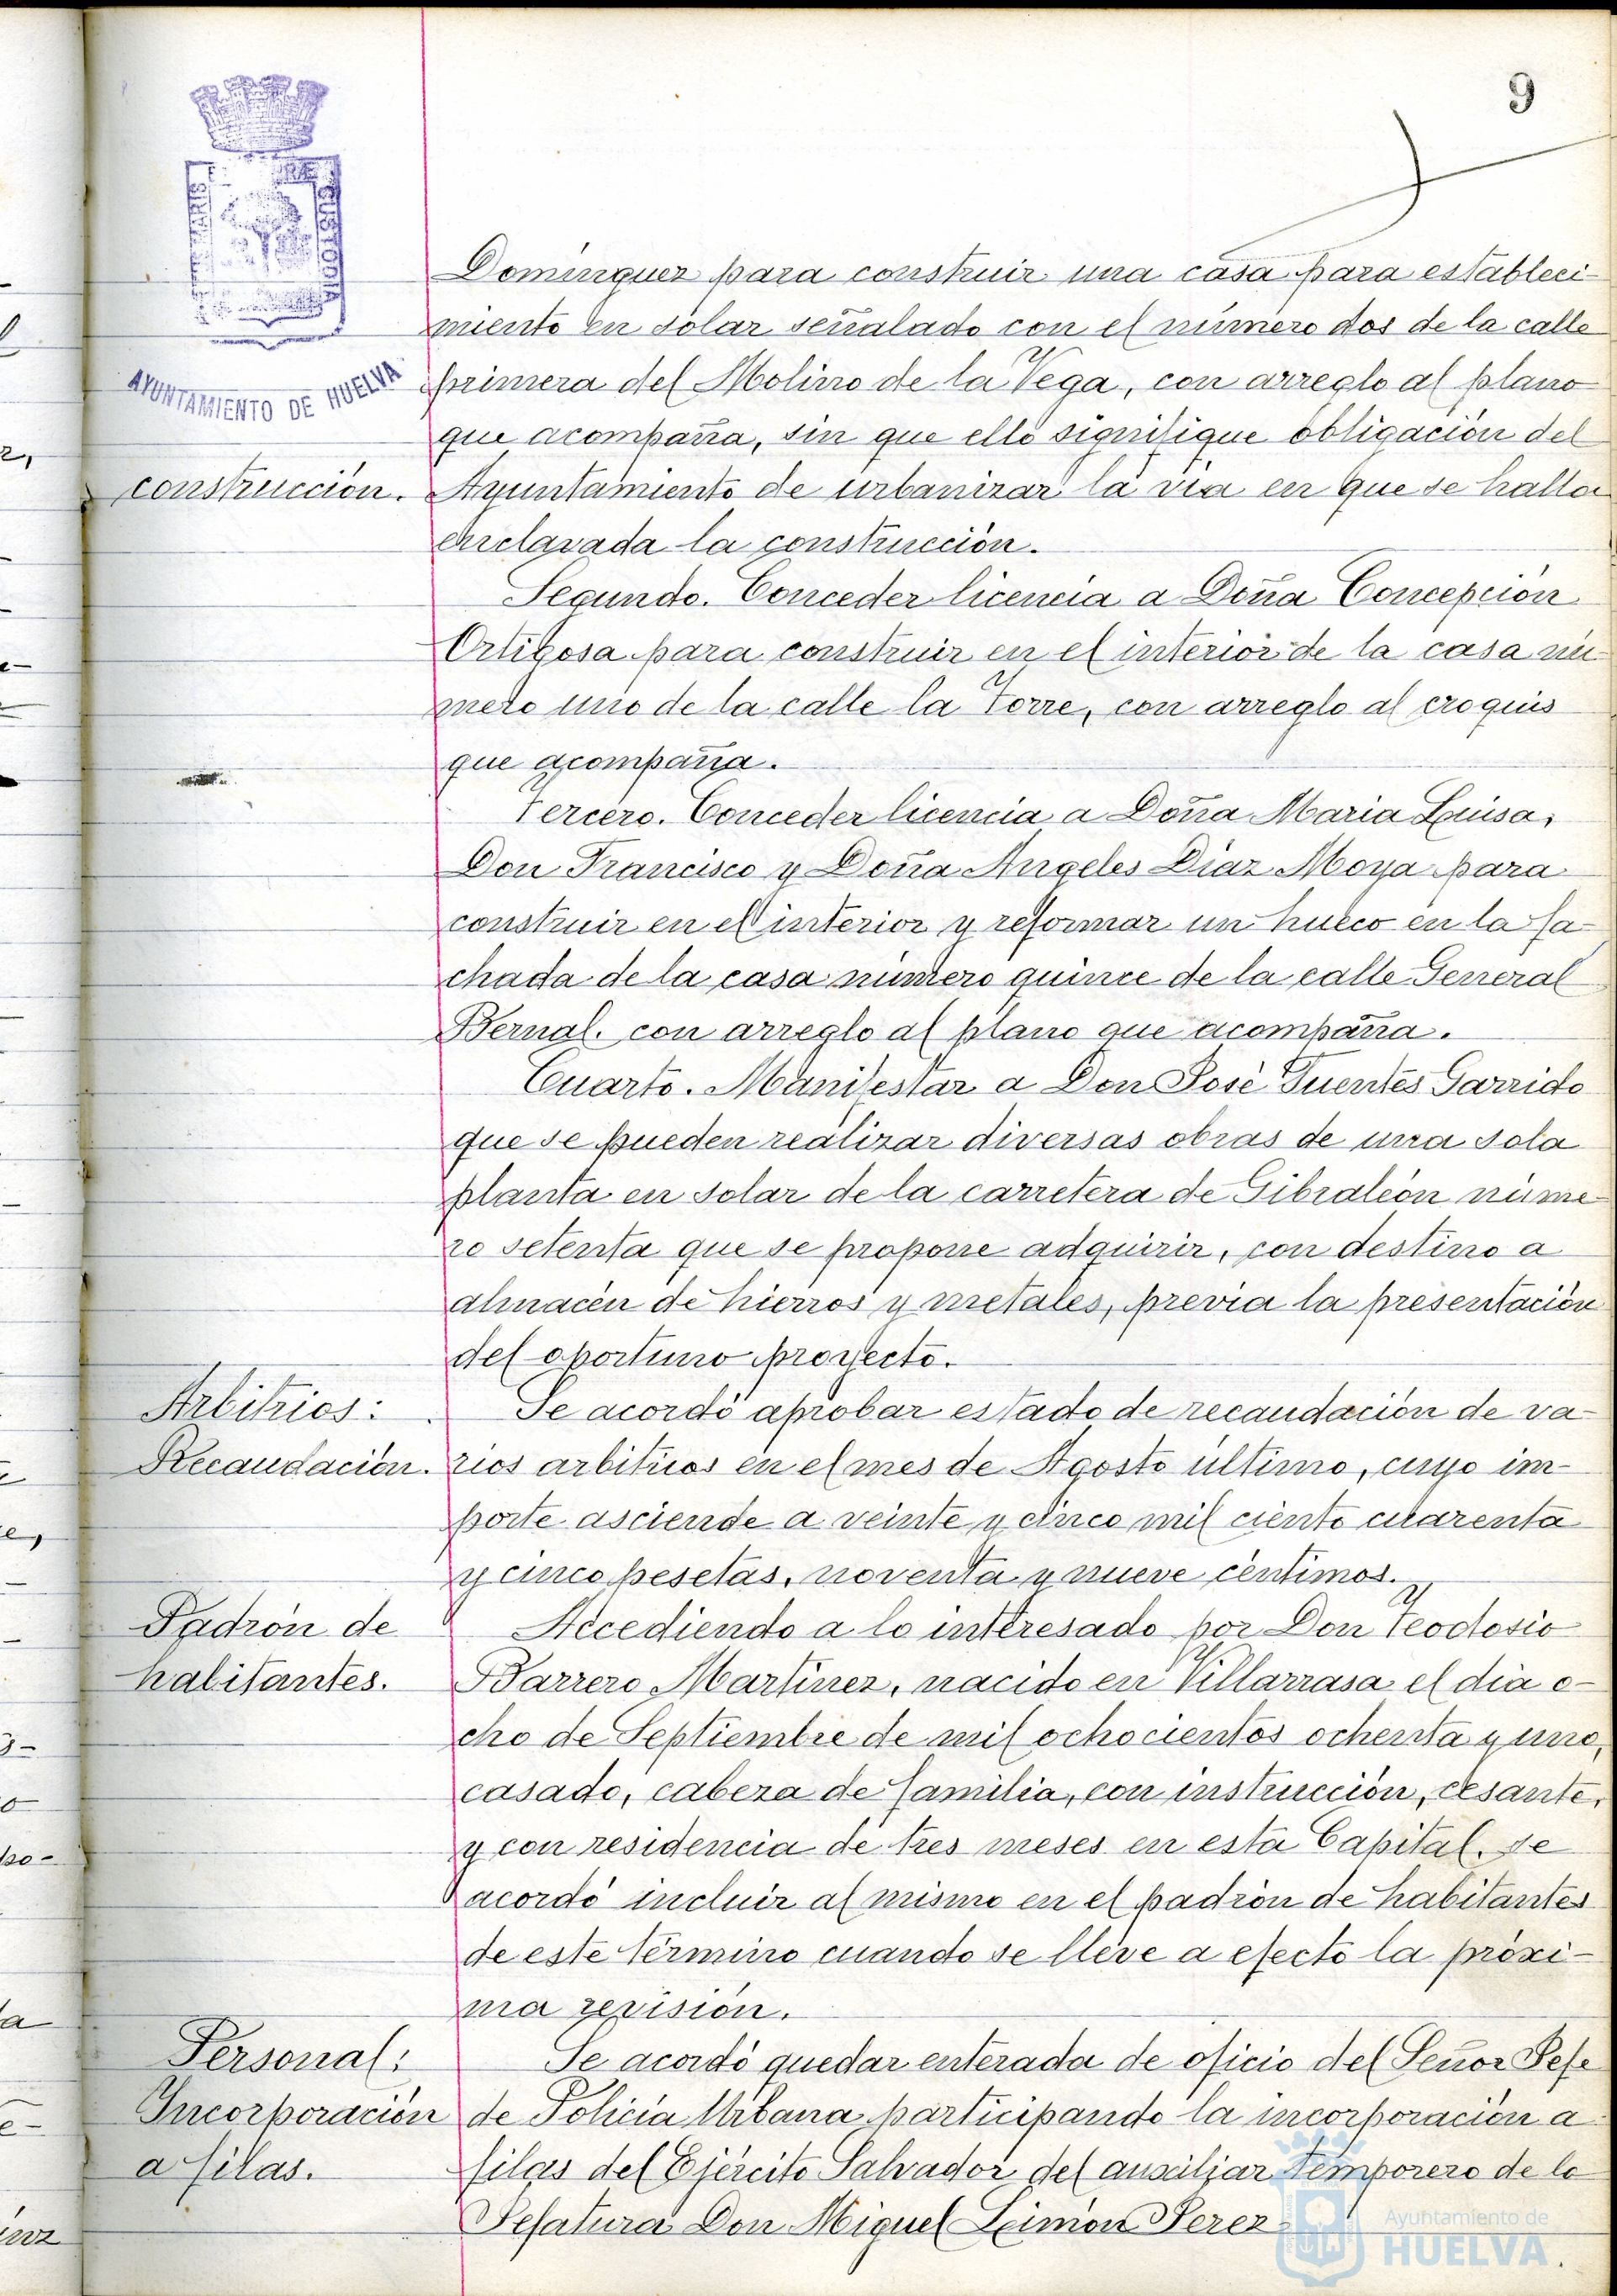 9
AYUNTAMIENTO DE HUELVA
Dominguez para construir una casa para estableci-
miento en solar señalado con el número dos de la calle
primera del Molino de la Vega, con arreglo al plano
que acompaña, sin que ello signifique obligación del
construcción.
Ayuntamiento de urbanizar la via en que se halla
enclavada la construcción.
Segundo. Conceder licencia a Doña Concepción
Ortigosa para construir en el interior de la casa nú-
mero uno de la calle la Torre, con arreglo al croquis
que acompaña.
Tercero. Conceder licencia a Doña Maria Luisa,
Don Francisco y Doña Angeles Diaz Moya para
construir en el interior y reformar un hueco en la fa-
chada de la casa número quince de la calle General
Bernal. con arreglo al plano que acompaña.
Cuarto. Manifestar a Don José Fuentes Garrido
que se pueden realizar diversas obras de una sola
planta en solar de la carretera de Gibraleón núme-
ro setenta que se propone adquirir, con destino a
almacén de hierros y metales, previa la presentación
del oportuno proyecto.
Arbitrios:
Recaudación.
Se acordó aprobar estado de recaudación de va-
rios arbitrios en el mes de Agosto último, cuyo im-
porte asciende a veinte y cinco mil ciento cuarenta
y cinco pesetas, noventa y nueve céntimos.
Padrón de
habitantes.
Accediendo a lo interesado por Don Teodosio
Barrero Martinez, nacido en Villarrasa el dia o-
cho de Septiembre de mil ochocientos ochenta y uno,
casado, cabeza de familia, con instrucción, cesante,
y con residencia de tres meses en esta Capital. se
acordó incluir al mismo en el padrón de habitantes
de este término cuando se lleve a efecto la próxi-
ma revisión.
Personal:
Incorporación
a filas.
Se acordó quedar enterada de oficio del Señor Jefe
de Policía Urbana participando la incorporación a
filas del Ejército Salvador del auxiliar temporero de la
Jefatura Don Miguel Limón Perez.
Ayuntamiento de
HUELVA